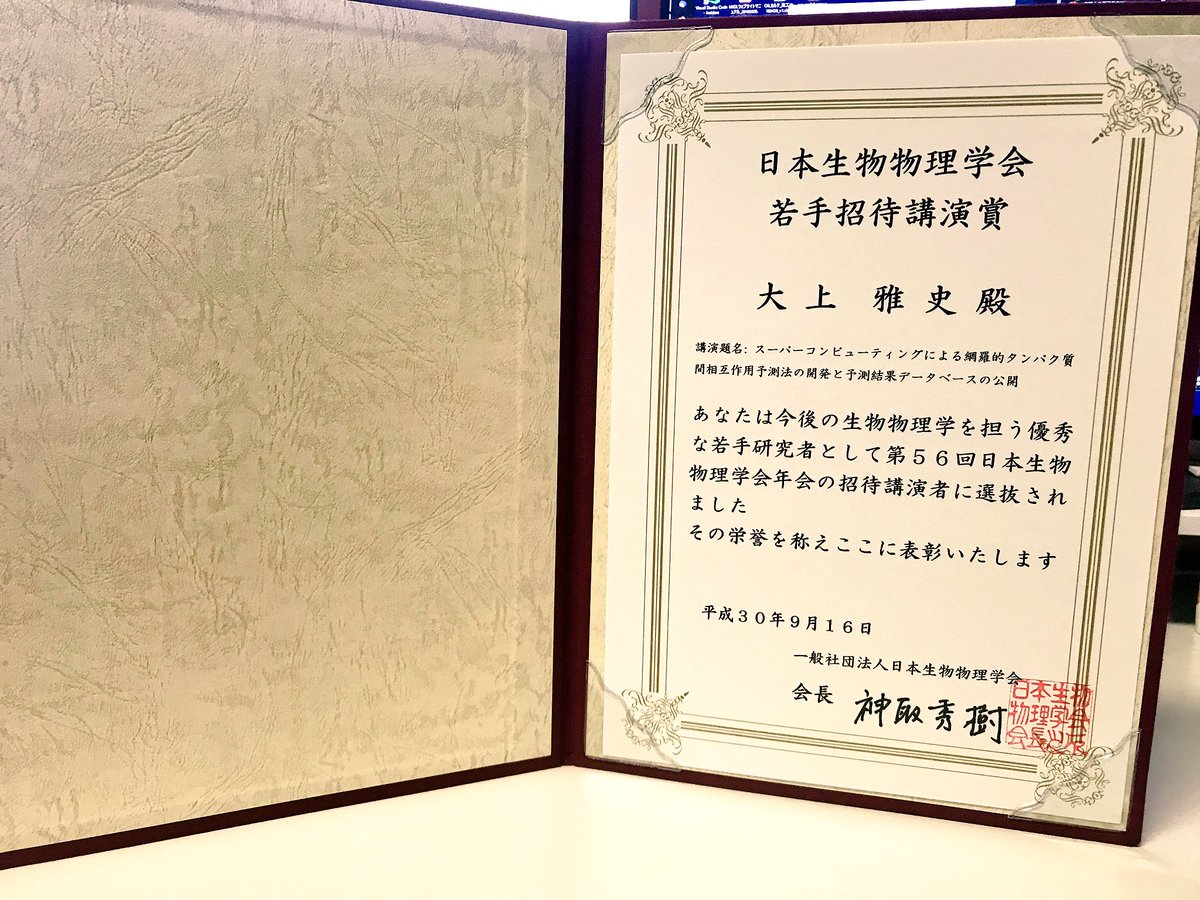 Visual Studio Code
日本生物物理学会
若手招待講演賞
大上 雅史 殿
講演題名: スーパーコンピューティングによる網羅的タンパク質
間相互作用予測法の開発と予測結果データベースの公開
あなたは今後の生物物理学を担う優秀
な若手研究者として第５６回日本生物
物理学会年会の招待講演者に選抜され
ました
その栄誉を称えここに表彰いたします
平成３０年９月１６日
一般社団法人日本生物物理学会
会長 神取秀樹
日本生物
物理学会
会長